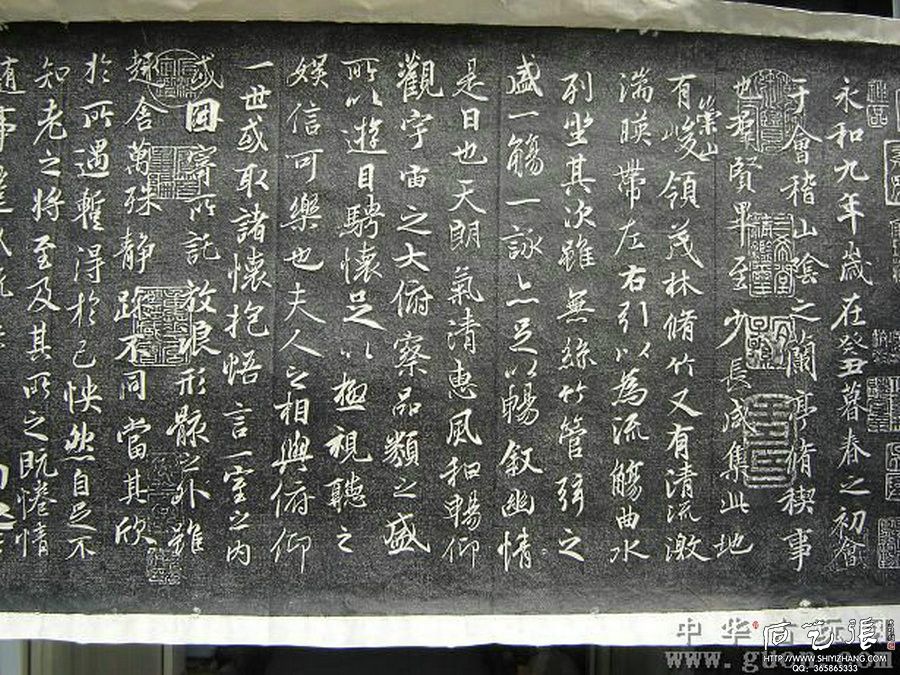 永和九年歲在癸丑暮春之初會
于會稽山陰之蘭亭脩稧事
也羣賢畢至少長咸集此地
有崇山峻領茂林脩竹又有清流激
湍暎帶左右引以為流觴曲水
列坐其次雖無絲竹管弦之
盛一觴一詠亦足以暢叙幽情
是日也天朗氣清惠風和暢仰
觀宇宙之大俯察品類之盛
所以遊目騁懷足以極視聽之
娛信可樂也夫人之相與俯仰
一世或取諸懷抱悟言一室之內
或因寄所託放浪形骸之外雖
趣舍萬殊靜躁不同當其欣
於所遇暫得於己怏然自足不
知老之將至及其所之既惓情
隨事遷感慨
HTTP://WWW.SHIYIZHANG.COM
QQ: 365865333